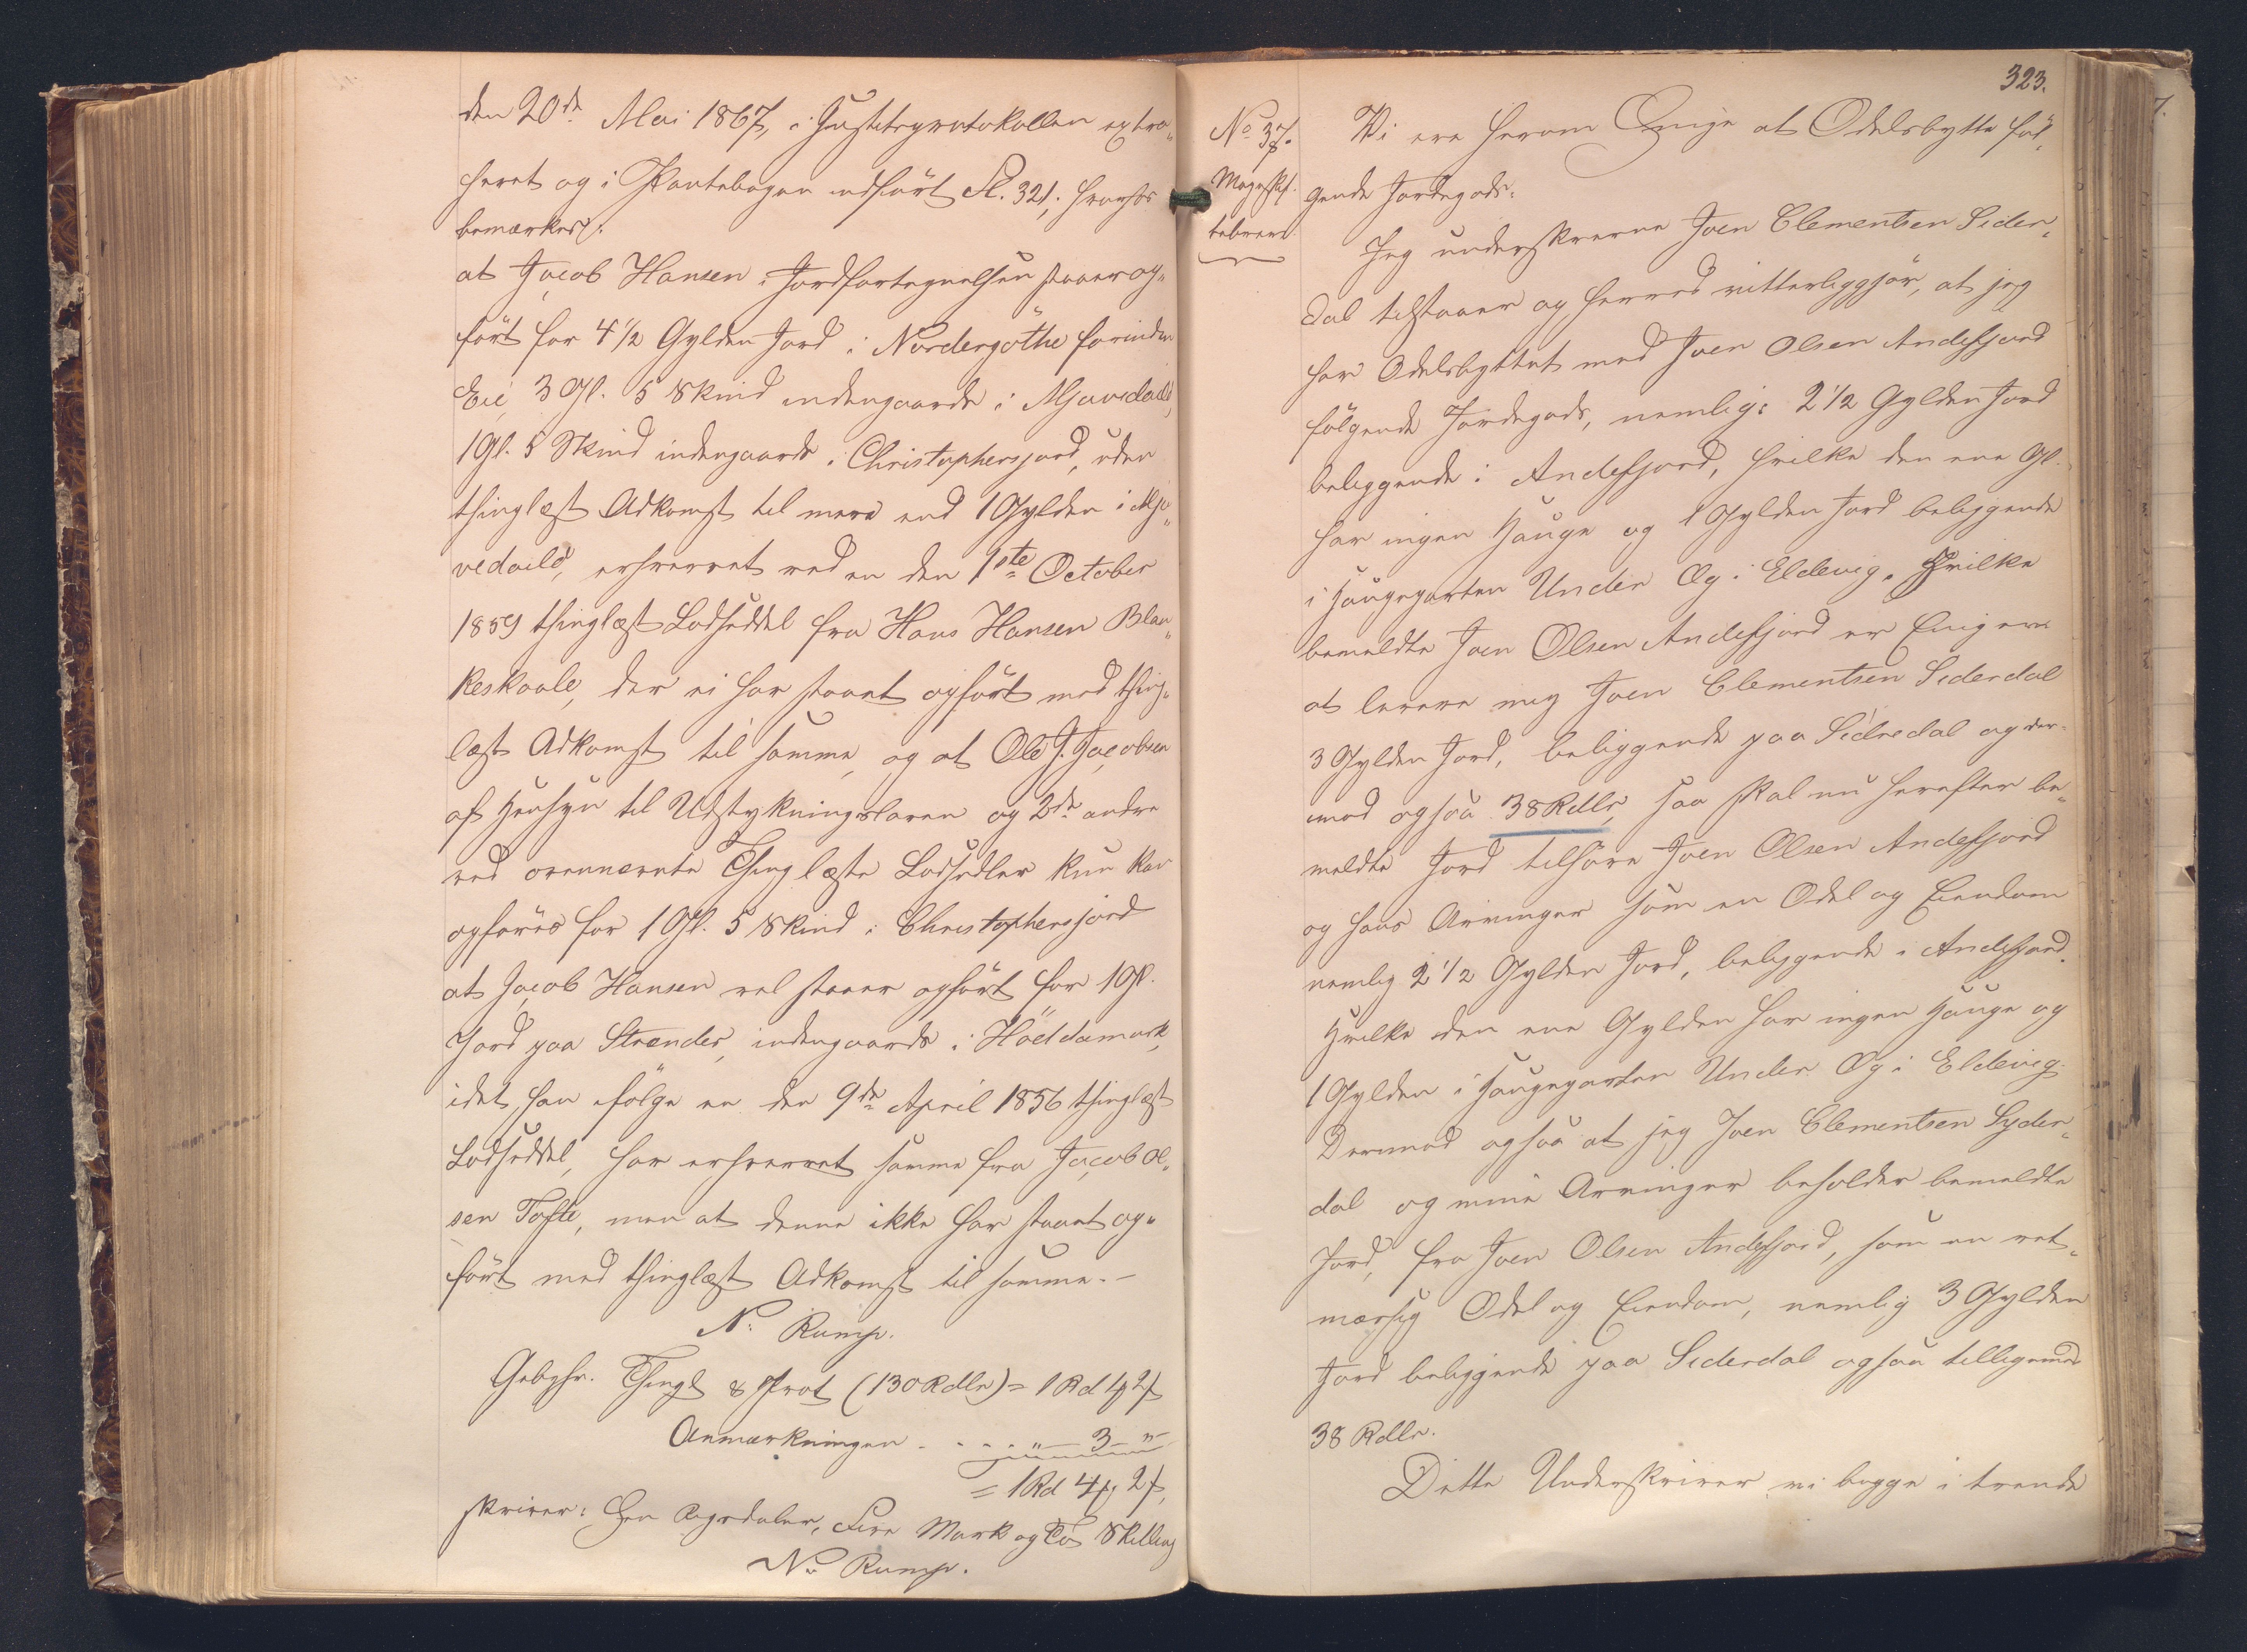 den 20de Mai 1867, i Justitsprotokollen extra„
heret og i Pantebogen indført Fl. 321; hvorhos
bemærkes:
at Jacob Hansen i Jordfortegnelsen staaer op„
ført for 4 1/2 Gylden Jord i Nordergöthe forinden
Eie, 3 Gl. 5 Skind indengaards i Mjavedaile,
1 Gl. 5 Skind indengaards i Christophersjord, uden
thinglæst Adkomst til mere end 1 Gylden i Mja„
vedaile, erhvervet ved en den 1ste October
1859 thinglæst Lodseddel fra Hans Hansen Blan„
keskaale, der ei har staaet opført med thing„
læst Adkomst til samme, og at Ole J. Jacobsen
af Hensyn til Udstykningsloven og 2de andre
ved ovennævnte Thinglæste Lodsedler kun kan
opføres for 1 Gl. 5 Skind i Christophersjord
at Jacob Hansen vel staaer opført for 1 Gl.
Jord paa Strænder, indengaards i Höddamark,
idet han ifølge en den 9de April 1856 thinglæst
Lodseddel, har erhvervet samme fra Jacob Ol„
sen Tofte, men at denne ikke har staaet op„
ført med thinglæst Adkomst til samme. –
N. Rump.
Gebyhr. Thingl & Prot (130 Rdlr) = 1 Rd 4 ꝟ 2 ß
Anmærkningen . . . . „ – 3 – „ –
= 1 Rd 4 ꝟ 2 ß,
skriver: Een Rigsdaler, Fire Mark og To Skilling
N. Rump.
323.
No 37.
8
Mageskif„
tebrev.
Vi ere herom Enige at Odelsbytte føl„
gende Jordegods:
Jeg underskrevne Joen Clementsen Sider„
dal tilstaaer og herved vitterliggjør, at jeg
har Odelsbyttet med Joen Olsen Andefjord
følgende Jordegods, nemlig: 2 1/2 Gylden Jord
beliggende i Andefjord, hvilke den ene Gl.
har ingen Hauge og 1 Gylden Jord beliggende
i Haugeparten Under Eg i Eldevig. Hvilke
bemeldte Joen Olsen Andefjord er Enig om
at levere mig Joen Clementsen Siderdal
3 Gylden Jord, beliggende paa Sidredal og der„
imod ogsaa 38 Rdlr, saa skal nu herefter be„
meldte Jord tilhøre Joen Olsen Andefjord
og hans Arvinger som en Odel og Eiendom
nemlig 2 1/2 Gylden Jord, beliggende i Andefjord.
Hvilke den ene Gylden har ingen Hauge og
1 Gylden i Haugeparten Under Eg i Eldevig.
Derimod ogsaa at jeg Joen Clementsen Syder„
dal og mine Arvinger beholder bemeldte
Jord, fra Joen Olsen Andefjord, som en ret„
mæssig Odel og Eiendom, nemlig 3 Gylden
Jord beliggende paa Siderdal ogsaa tilligemed
38 Rdlr.
Dette Underskriver vi begge i trende